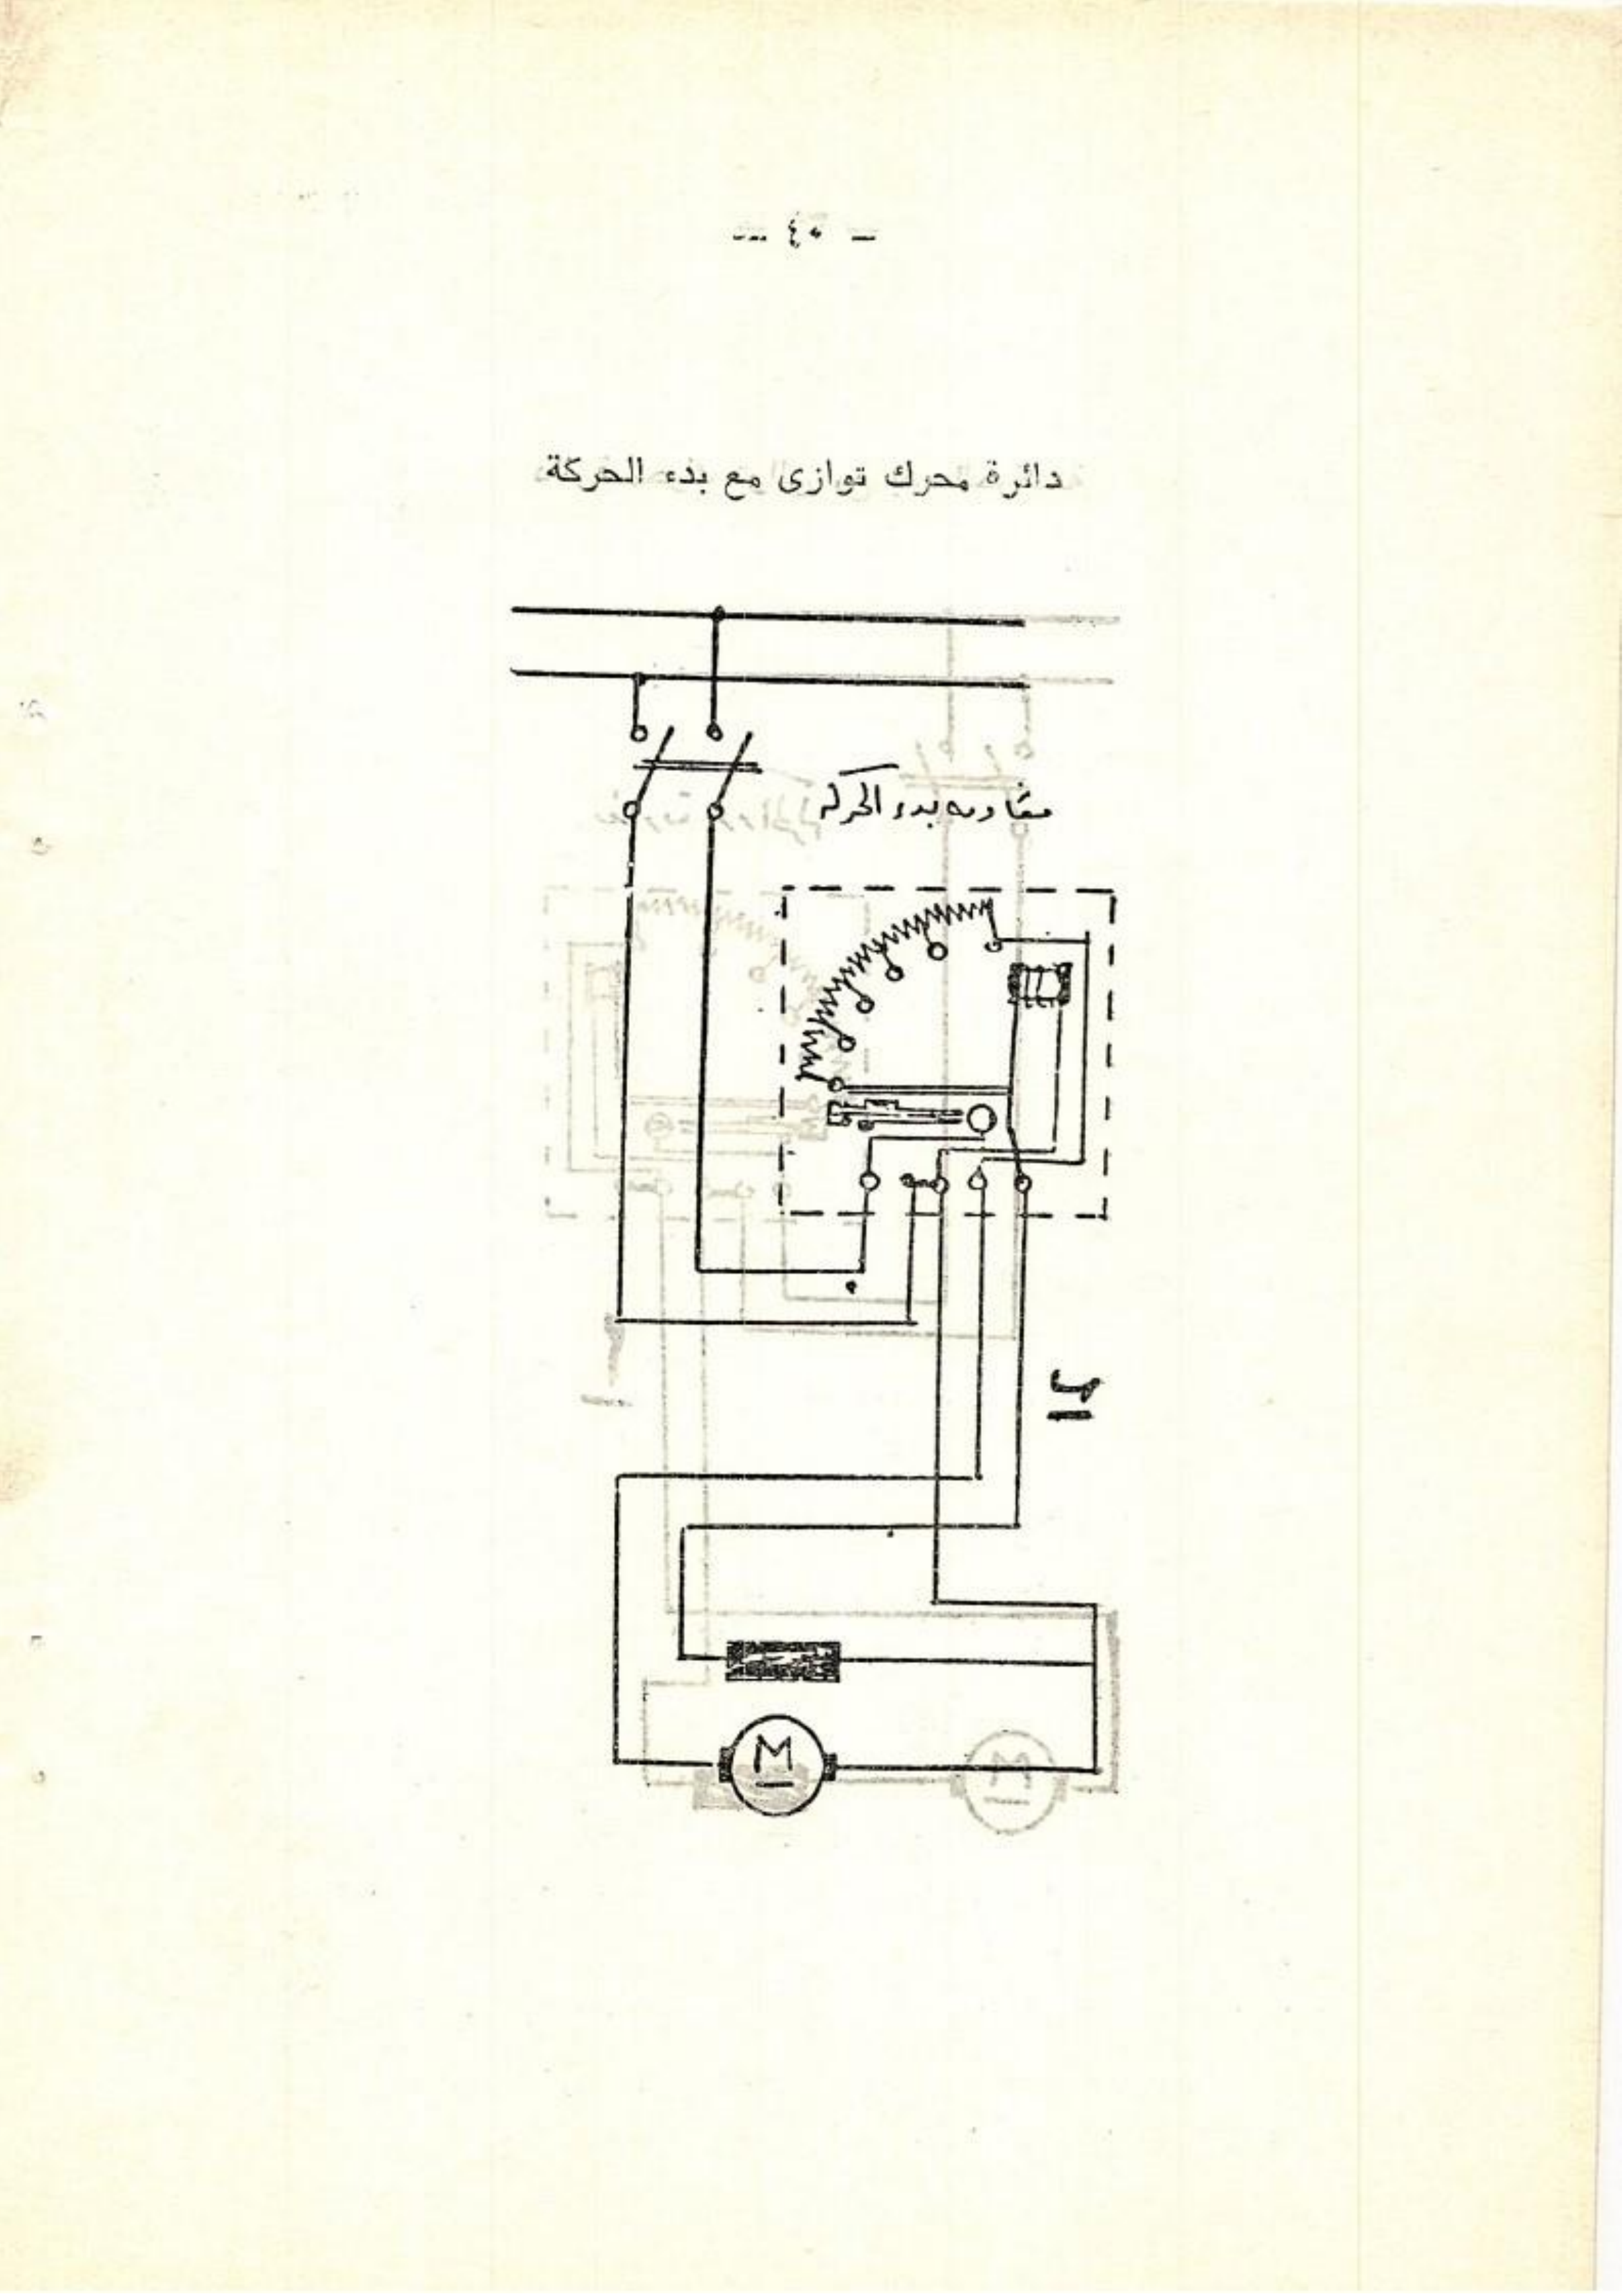 — ٤٠ —
دائرة محرك توازى مع بدء الحركة
مقاومه بدء الحركه
M